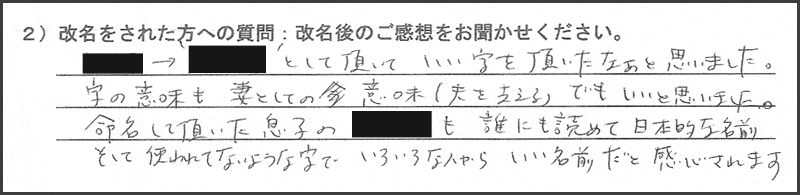 2）改名をされた方への質問：改名後のご感想をお聞かせください。
→ として頂いて いい字を頂いたなぁと思いました。
字の意味も 妻としての 意味（夫を支える）でもいいと思いました。
命名して頂いた息子の も 誰にも読めて 日本的な名前
そして 使われてないような字で いろいろな人から いい名前だと 感心されます